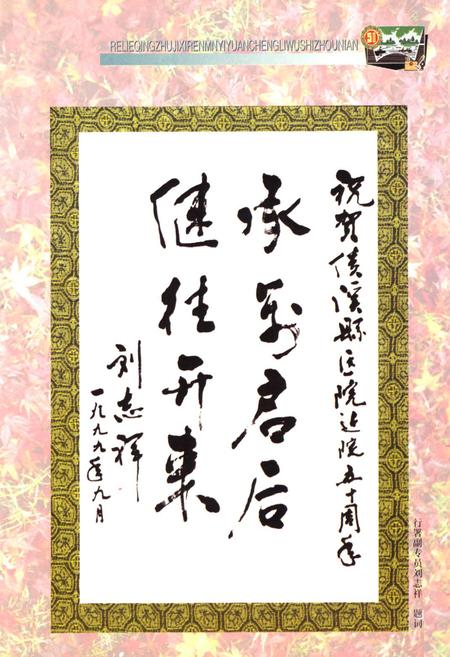 RELIEQINGZHUJIXIRENMNYIYUANCHENGLIWUSHIZHOUNIAN
50
祝贺绩溪縣医院建院五十周年
承前启后
继往开来
刘志祥
一九九九年九月
行署副专员刘志祥 题词